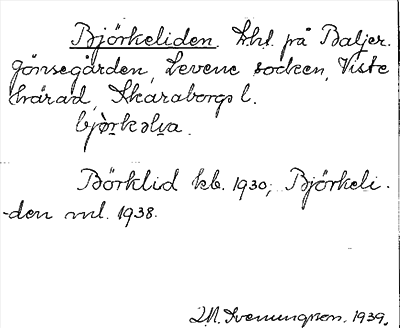 Björkeliden. Lht. på Baljer.
Jönsegården, Levene socken, Viste
härad, Skaraborgs l.
bjö̀rkəlia.
Börklid kb. 1930; Björkeli-
-den ml. 1938.
1939.